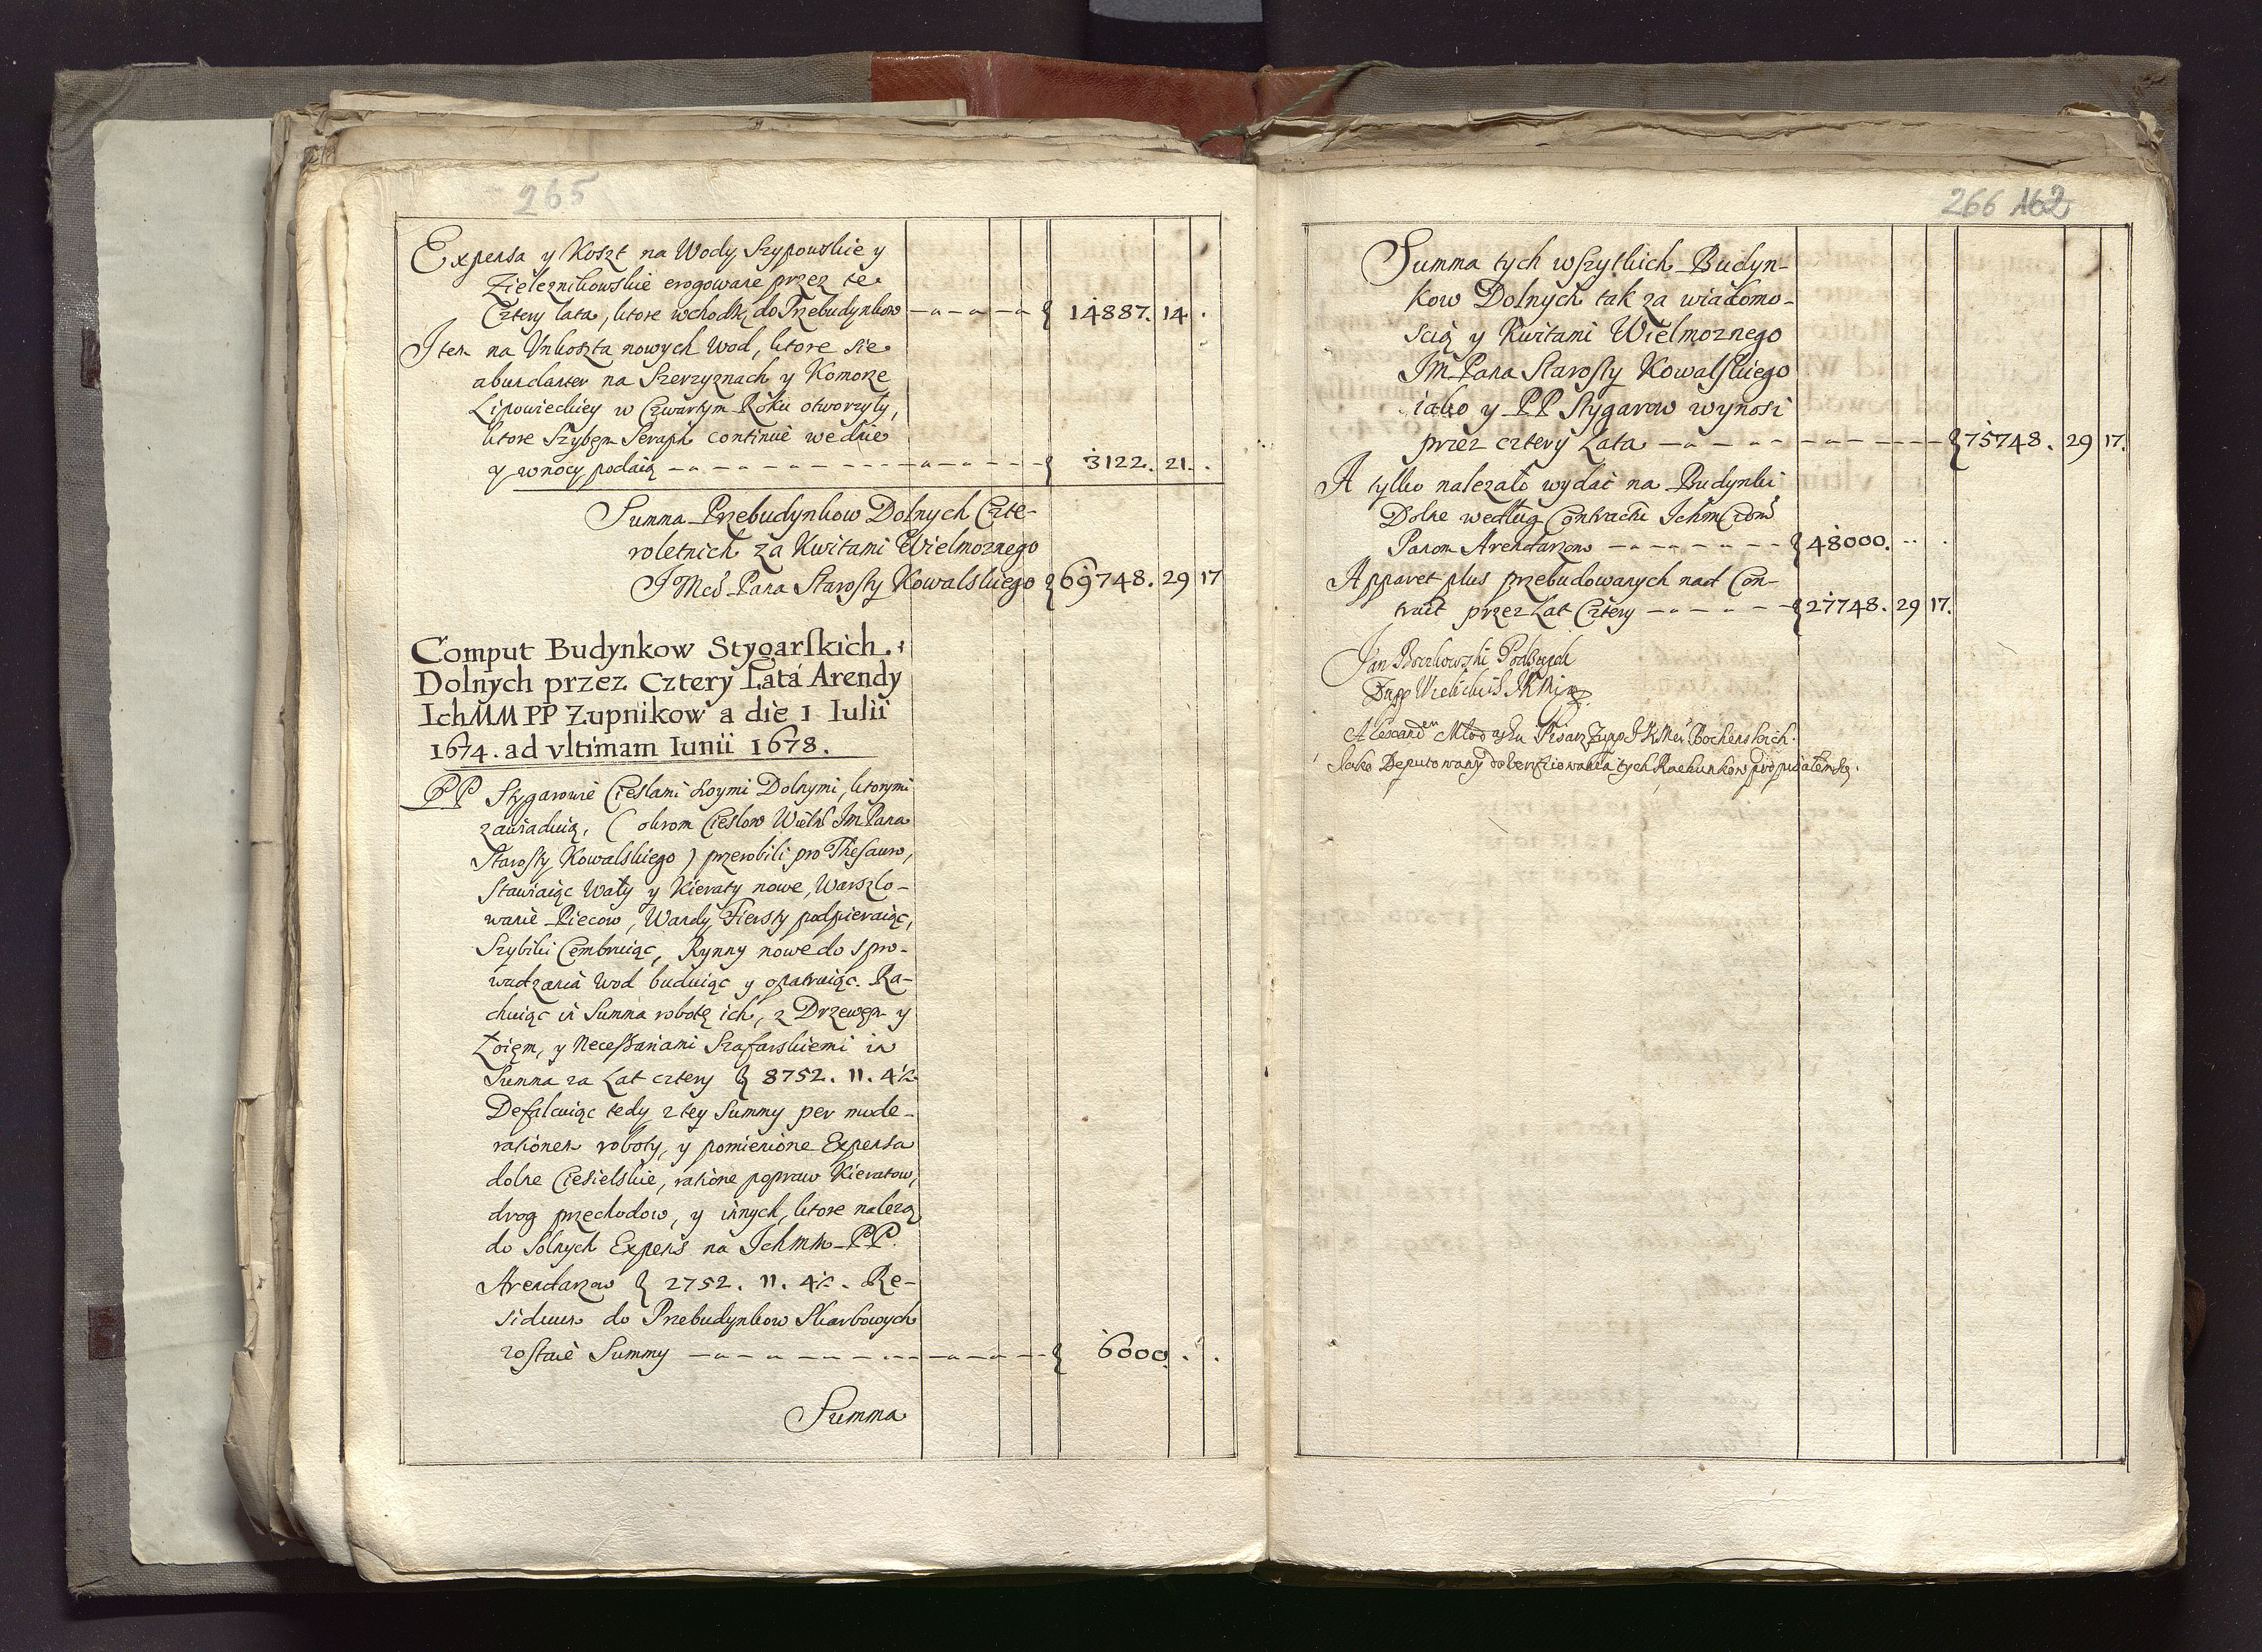 265
Expensa y Koszt na Wody Szypowskie y
Zieleznikowskie erogowane przez te
Cztery lata, ktore wchodzą do Przebudynkow 14887. 14.
Item na Unkoszta nowych Wod, ktore sie
abundanter na Szerzyznach y Komorze
Lipowieckiey w Czwartym Roku otworzyły,
ktore Szybem Seraph continuè we dnie
y w nocy podaią 3122. 21.
Summa Przebudynkow Dolnych Czte-
roletnich za Kwitami Wielmoznego
JMci Pana Starosty Kowalskiego 69748. 29 17
Comput Budynkow Stygarskich
Dolnych przez Cztery Latá Arendy
IchMM PP Zupnikow a die 1 Iulii
1674. ad vltimam Iunii 1678.
PP Stygarowie Cieslami swymi Dolnymi, ktorymi
zawiaduią, (okrom Cieslow Wielm JmPana
Starosty Kowalskiego) przerobili pro Thesauro,
Stawiaiąc Wały y Kieraty nowe, Warszlo-
wanie Piecow, Wandy, Fiersty podpieraiąc,
Szybiki Cembruiąc, Rynny nowe do spro-
wadzania Wod buduiąc y opatruiąc. Ra-
chuiąc in Summa robotę ich, z Drzewem y
Łoięm, y Necessariami Szafarskiemi in
Summa za Lat cztery 8752. 11. 4½
Defalcuiąc tedy z tey Summy per mode-
rationem roboty, y pomienione Expensa
dolne Ciesielskie, ratione popraw Kieratow,
drog przechodow, y innych, ktore nalezą
do Solnych Expens na Ichmm PP.
Arendarzow 2752. 11. 4½. Re-
siduum do Przebudynkow Skarbowych
zostaie Summy 6000. . .
Summa
266 162
Summa tych wszytkich Budyn-
kow Dolnych tak za wiadomo-
scią y Kwitami Wielmoznego
JmPana Starosty Kowalskiego
iako y PP Stygarow wynosi
przez cztery Lata 75748. 29 17.
A tylko nalezało wydać na Budynki
Dolne według Contractu Ichmciom
Panom Arendarzom 48000. .. .
Apparet plus przebudowanych nad Con-
tract przez Lat Cztery 27748. 29 17.
Jan Boczkowski Podzupek
Zupp
Alexander Pisarz Zupp JKMci Bochenskich
Jako Deputowany do tych Rachunkow